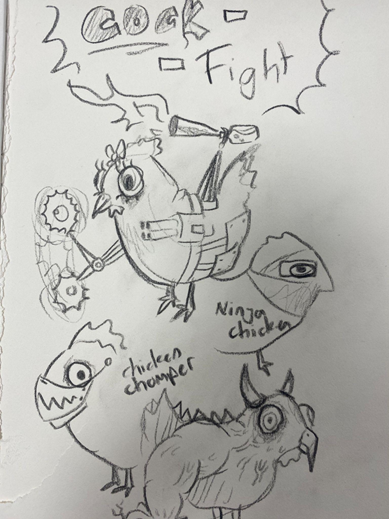 COCK
Fight
Ninja
chicken
chicken
chomper